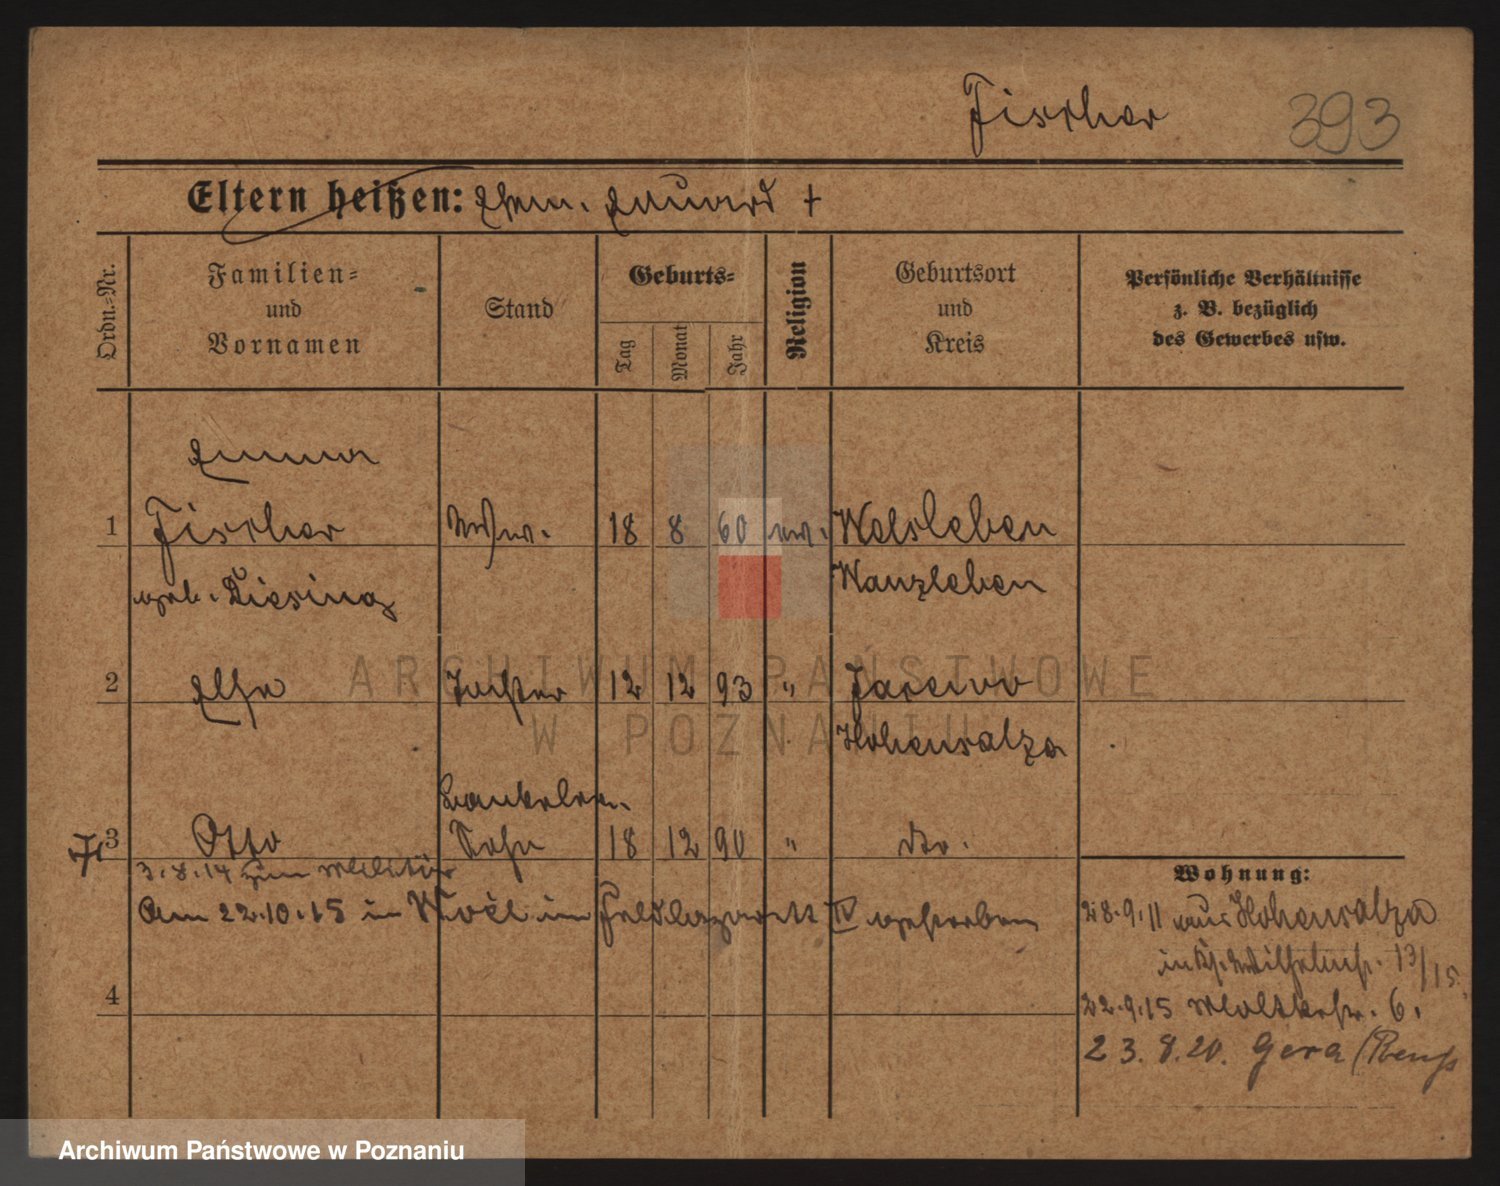 Fischer 393
Eltern heißen: Ehem. Eduard †
Ordn.-Nr.
Familien-
und
Vornamen
Stand
Geburts-
Tag
Monat
Jahr
Religion
Geburtsort
und
Kreis
Persönliche Verhältnisse
z. B. bezüglich
des Gewerbes usw.
Emma
1 Fischer Wwe. 18 8 60 ev. Welsleben
geb. Diesing Wanzleben
2 Else Tochter 12 12 93 " Jarewo
Hohensalza
Bankbeamt.
3 Otto Sohn 18 12 90 " do.
3.8.14 zum Militär
Am 22.10.15 in im Feldlazarett IV gestorben
4
Wohnung:
28.9.11 aus Hohensalza
13/15.
22.9.15 Moltkestr. 6.
23.8.20. Gera (Reuß
ARCHIWUM PAŃSTWOWE
W POZNANIU
Archiwum Państwowe w Poznaniu